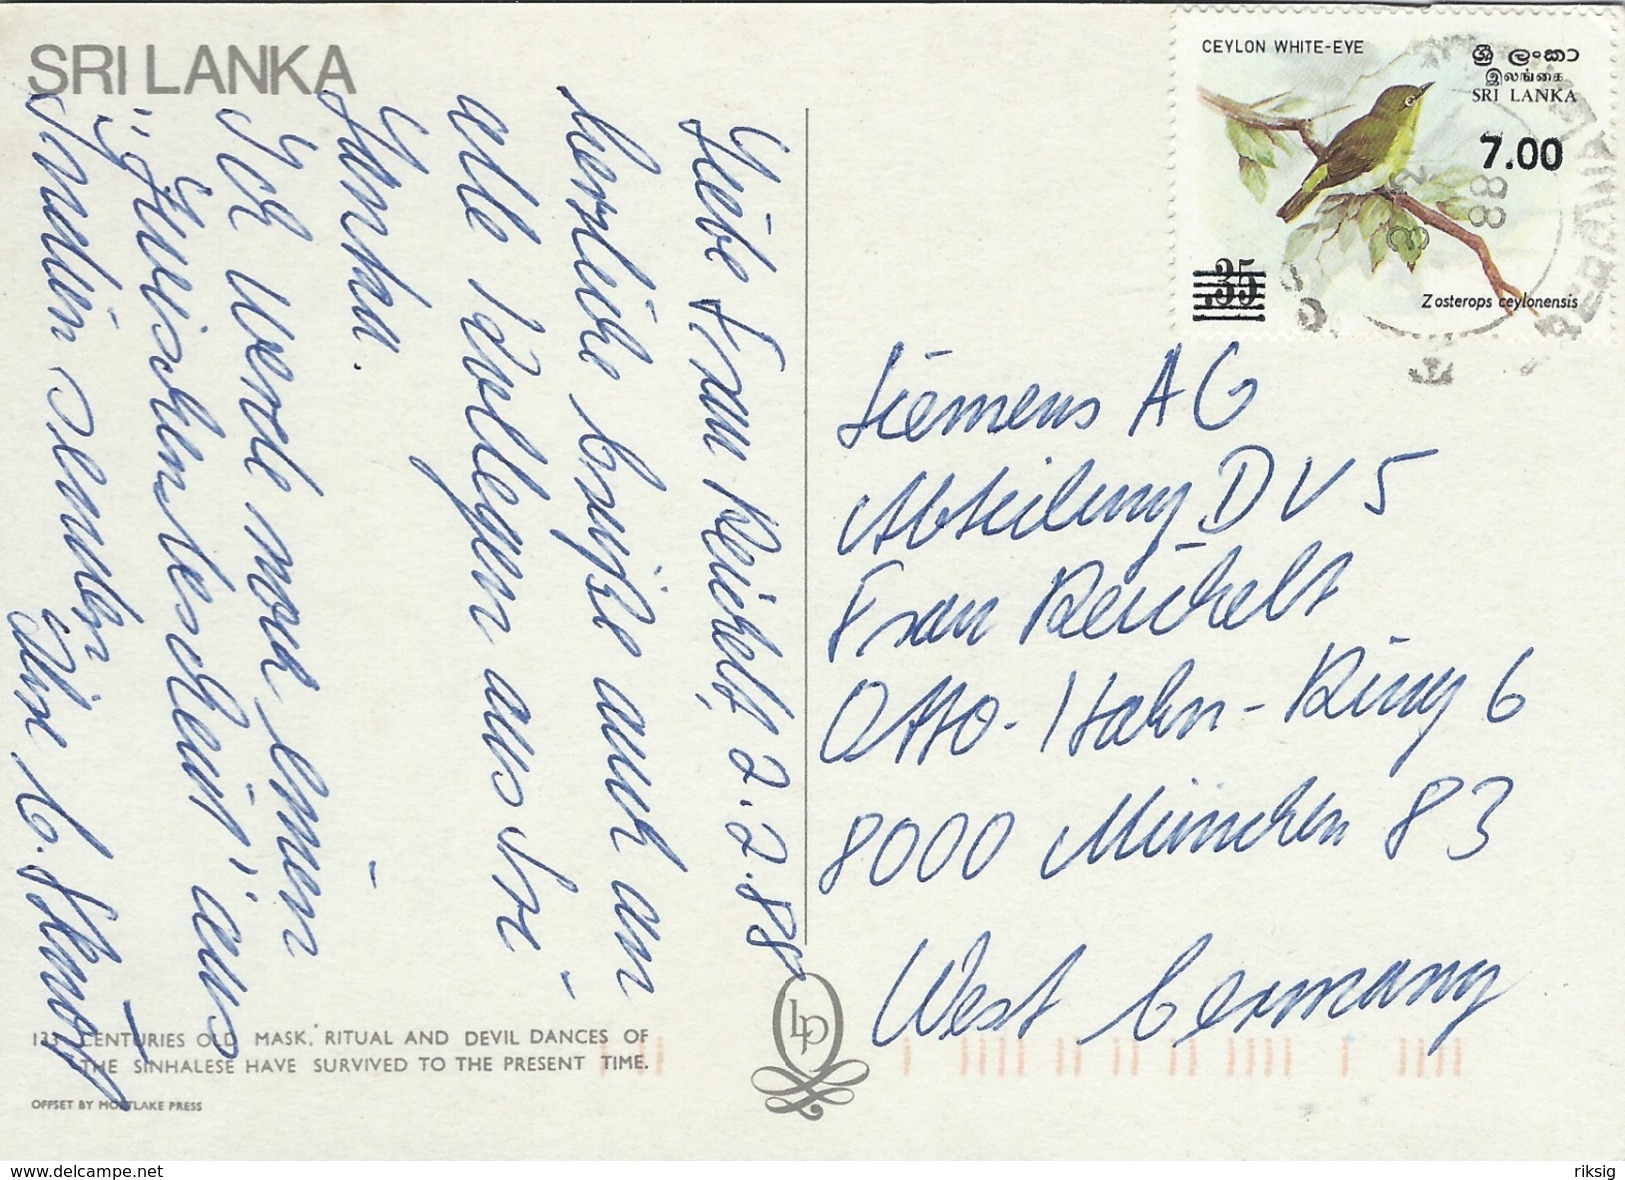 SRI LANKA
Liebe Frau Reichelt, 2.2.88
herzliche Grüße auch an
alle Kollegen aus Sri
Lanka.
Ich werde noch einen
"Zwischenbescheid" aus
Indien senden
Ihr G.
133 CENTURIES OLD MASK, RITUAL AND DEVIL DANCES OF
THE SINHALESE HAVE SURVIVED TO THE PRESENT TIME.
OFFSET BY MORTLAKE PRESS
LP
CEYLON WHITE-EYE
ශ්‍රී ලංකා
இலங்கை
SRI LANKA
7.00
.35
Zosterops ceylonensis
88
Siemens AG
Abteilung DV 5
Frau Reichelt
Otto-Hahn-Ring 6
8000 München 83
West Germany
www.delcampe.net
riksig